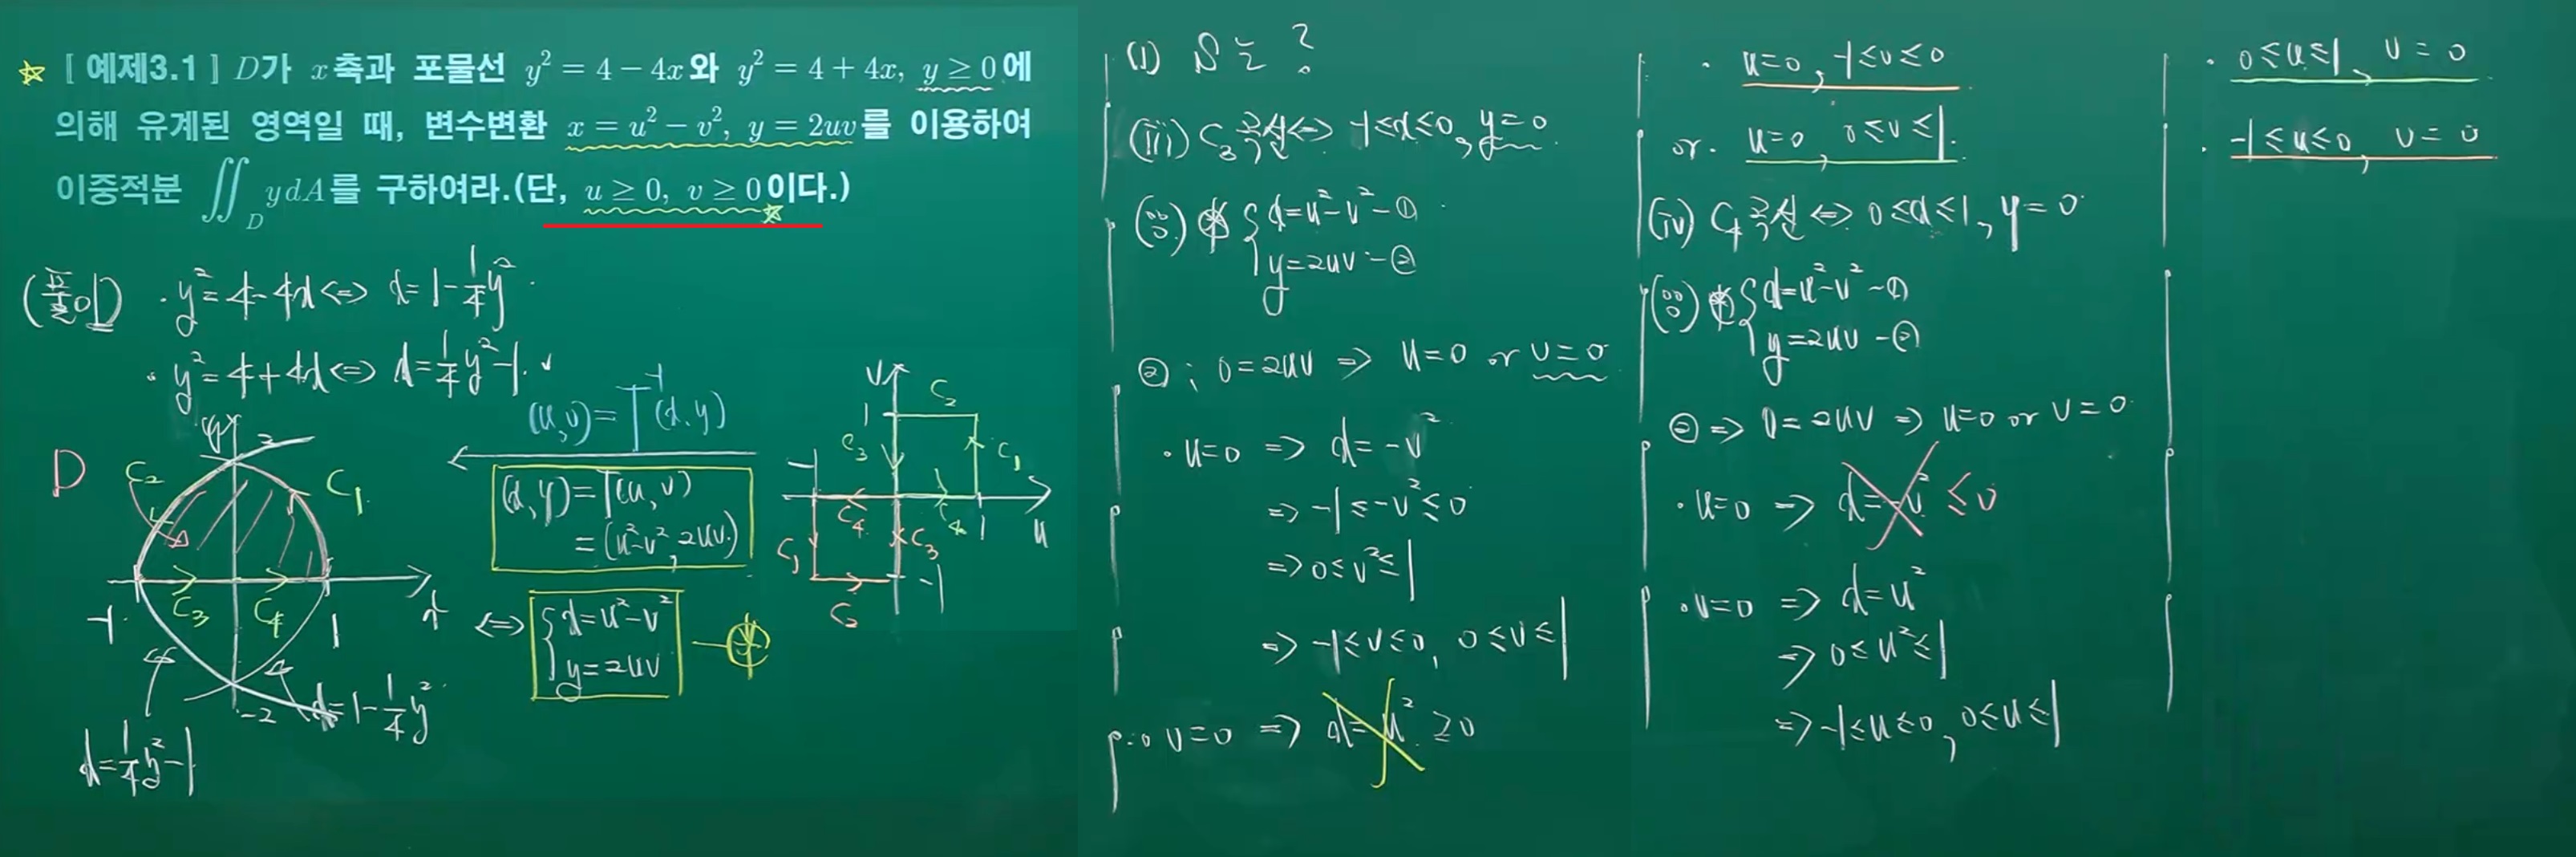 ☆ [ 예제3.1 ] D가 x축과 포물선 y² = 4 − 4x와 y² = 4 + 4x, y ≥ 0에
의해 유계된 영역일 때, 변수변환 x = u² − v², y = 2uv를 이용하여
이중적분 ∬_D ydA를 구하여라.(단, u ≥ 0, v ≥ 0이다.)
(풀이) · y² = 4 - 4x <=> x = 1 - 1/4 y²
· y² = 4 + 4x <=> x = 1/4 y² - 1
D
y
2
C₂
C₁
C₃
C₄
-1
1
x
-2
x = 1 - 1/4 y²
x = 1/4 y² - 1
(u, v) = T⁻¹(x, y)
(x, y) = T(u, v)
= (u² - v², 2uv)
<=> { x = u² - v²
y = 2uv
v
1
C₂
C₃
C₁
C₄
-1
1
u
C₄
C₁
C₃
-1
C₂
(1) S는 ?
(iii) C₃ 곡선 <=> -1 ≤ x ≤ 0, y = 0
(∵) ⊛ { x = u² - v² - ①
y = 2uv - ②
② ; 0 = 2uv => u = 0 or v = 0
· u = 0 => x = -v²
=> -1 ≤ -v² ≤ 0
=> 0 ≤ v² ≤ 1
=> -1 ≤ v ≤ 0, 0 ≤ v ≤ 1
· v = 0 => x = u² ≥ 0
· u = 0, -1 ≤ v ≤ 0
or · u = 0, 0 ≤ v ≤ 1
(iv) C₄ 곡선 <=> 0 ≤ x ≤ 1, y = 0
(∵) ⊛ { x = u² - v² - ①
y = 2uv - ②
② => 0 = 2uv => u = 0 or v = 0
· u = 0 => x = -v² ≤ 0
· v = 0 => x = u²
=> 0 ≤ u² ≤ 1
=> -1 ≤ u ≤ 0, 0 ≤ u ≤ 1
· 0 ≤ u ≤ 1, v = 0
· -1 ≤ u ≤ 0, v = 0